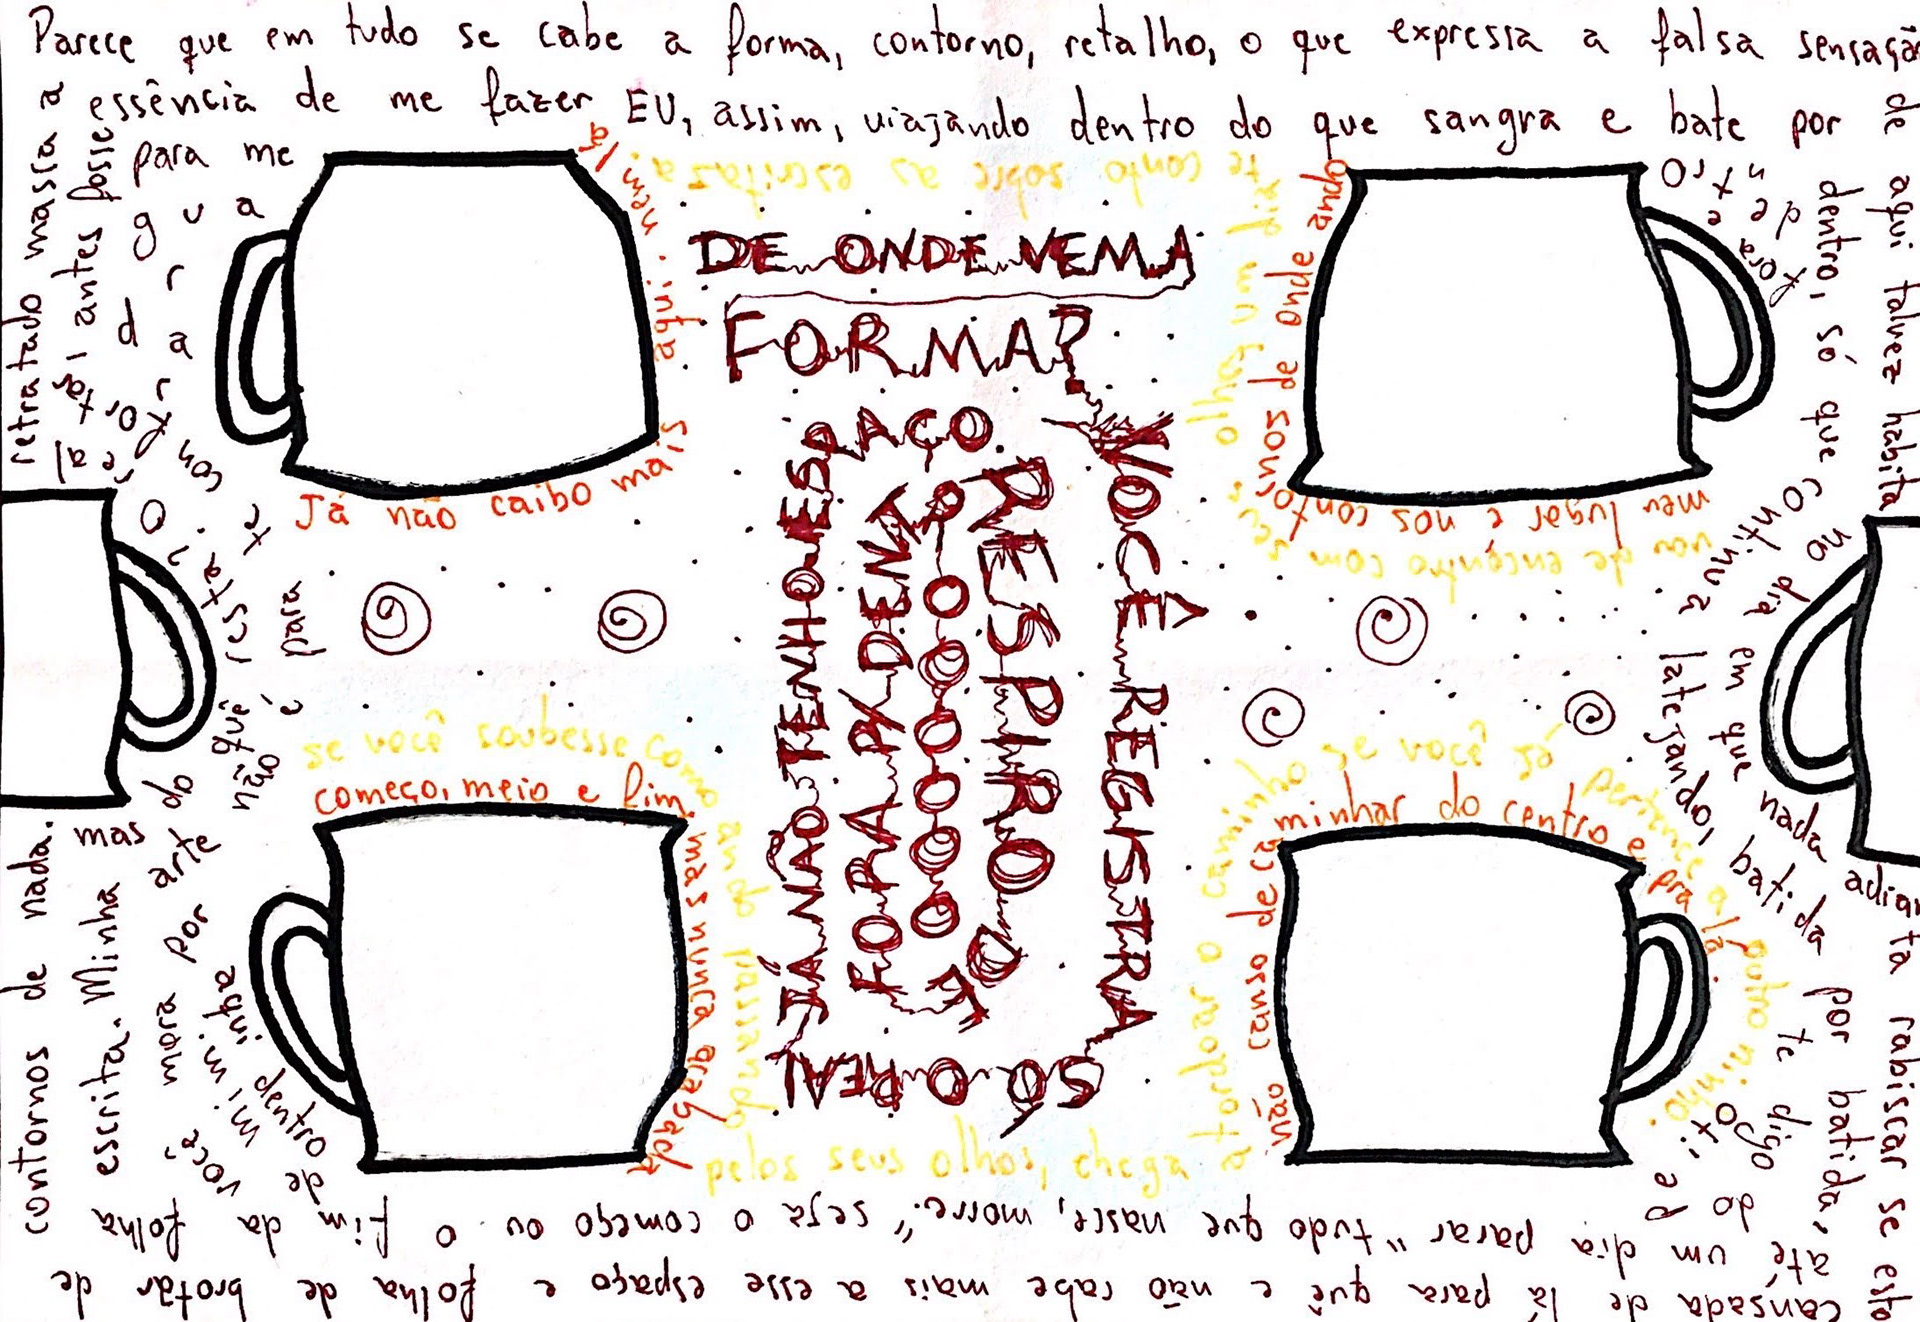 Parece que em tudo se cabe a forma, contorno, retalho, o que expressa a falsa sensação
de aqui talvez habita
no dia em que nada adianta rabiscar se esto
cansada de lá para quê e não cabe mais a esse espaço e folha de brotar de
contornos de nada.
retratado massa a
essência de me fazer EU, assim, viajando dentro do que sangra e bate por
dentro, só que continua
latejando, batida por batida,
até um dia parar "tudo que nasce, morre." seja o começo ou o fim da folha
escrita. Minha
arte
mora por
você
dentro de
mim
está, antes fosse
para me
guardar
te contorar
O
resta
do quê
mas
não é para
dentro e fora
te digo do
DE ONDE VEM A
FORMA?
VOCÊ REGISTRA
SÓ O REAL
JÁ NÃO TENHO ESPAÇO
RESPIRO DE
FORA P/ DENT
RO O O O O O O
Já não caibo mais
aqui. nem lá
meu lugar é nos contornos de onde ando
começo, meio e fim
mas nunca apagada
não canso de caminhar do centro e pra lá.
se você soubesse como ando passando
pelos seus olhos, chega a
tordoar o caminho se você já pertence a outro ninho.
vou de encontro com seu olhar um dia
te conto sobre as escritas